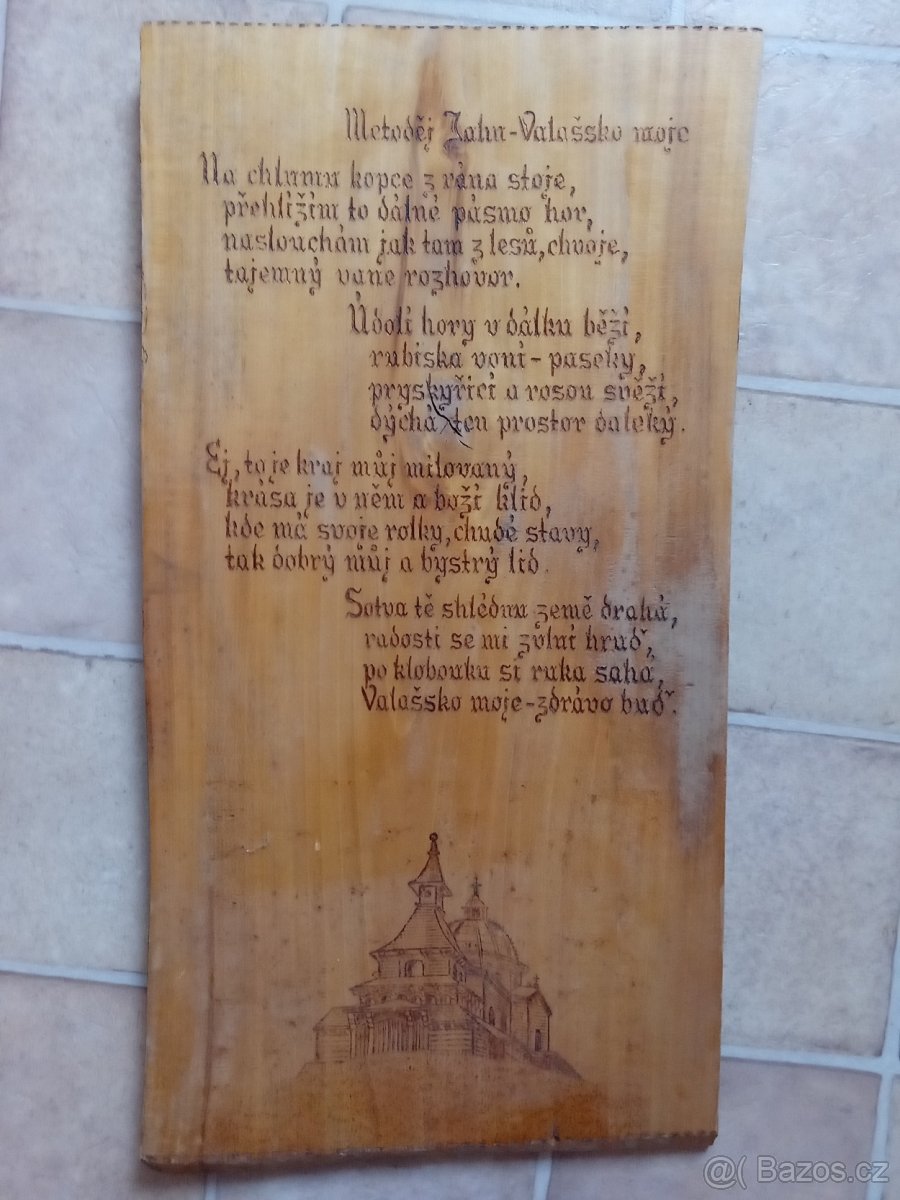 Metoděj Jahn-Valašsko moje
Na chlumu kopce z rána stoje,
přehlížím to dálné pásmo hor,
naslouchám jak tam z lesů, chvoje,
tajemný vane rozhovor.
Údolí hory v dálku běží,
rubiska voní - paseky,
pryskyřicí a rosou svěží,
dýchá ten prostor daleký.
Ej, to je kraj můj milovaný,
krása je v něm a boží klid,
kde má svoje rolky, chudé stavy,
tak dobrý můj a bystrý lid.
Sotva tě shlédnu země drahá,
radostí se mi zvlní hruď,
po klobouku si ruka sahá,
Valašsko moje - zdrávo buď.
@( Bazos.cz